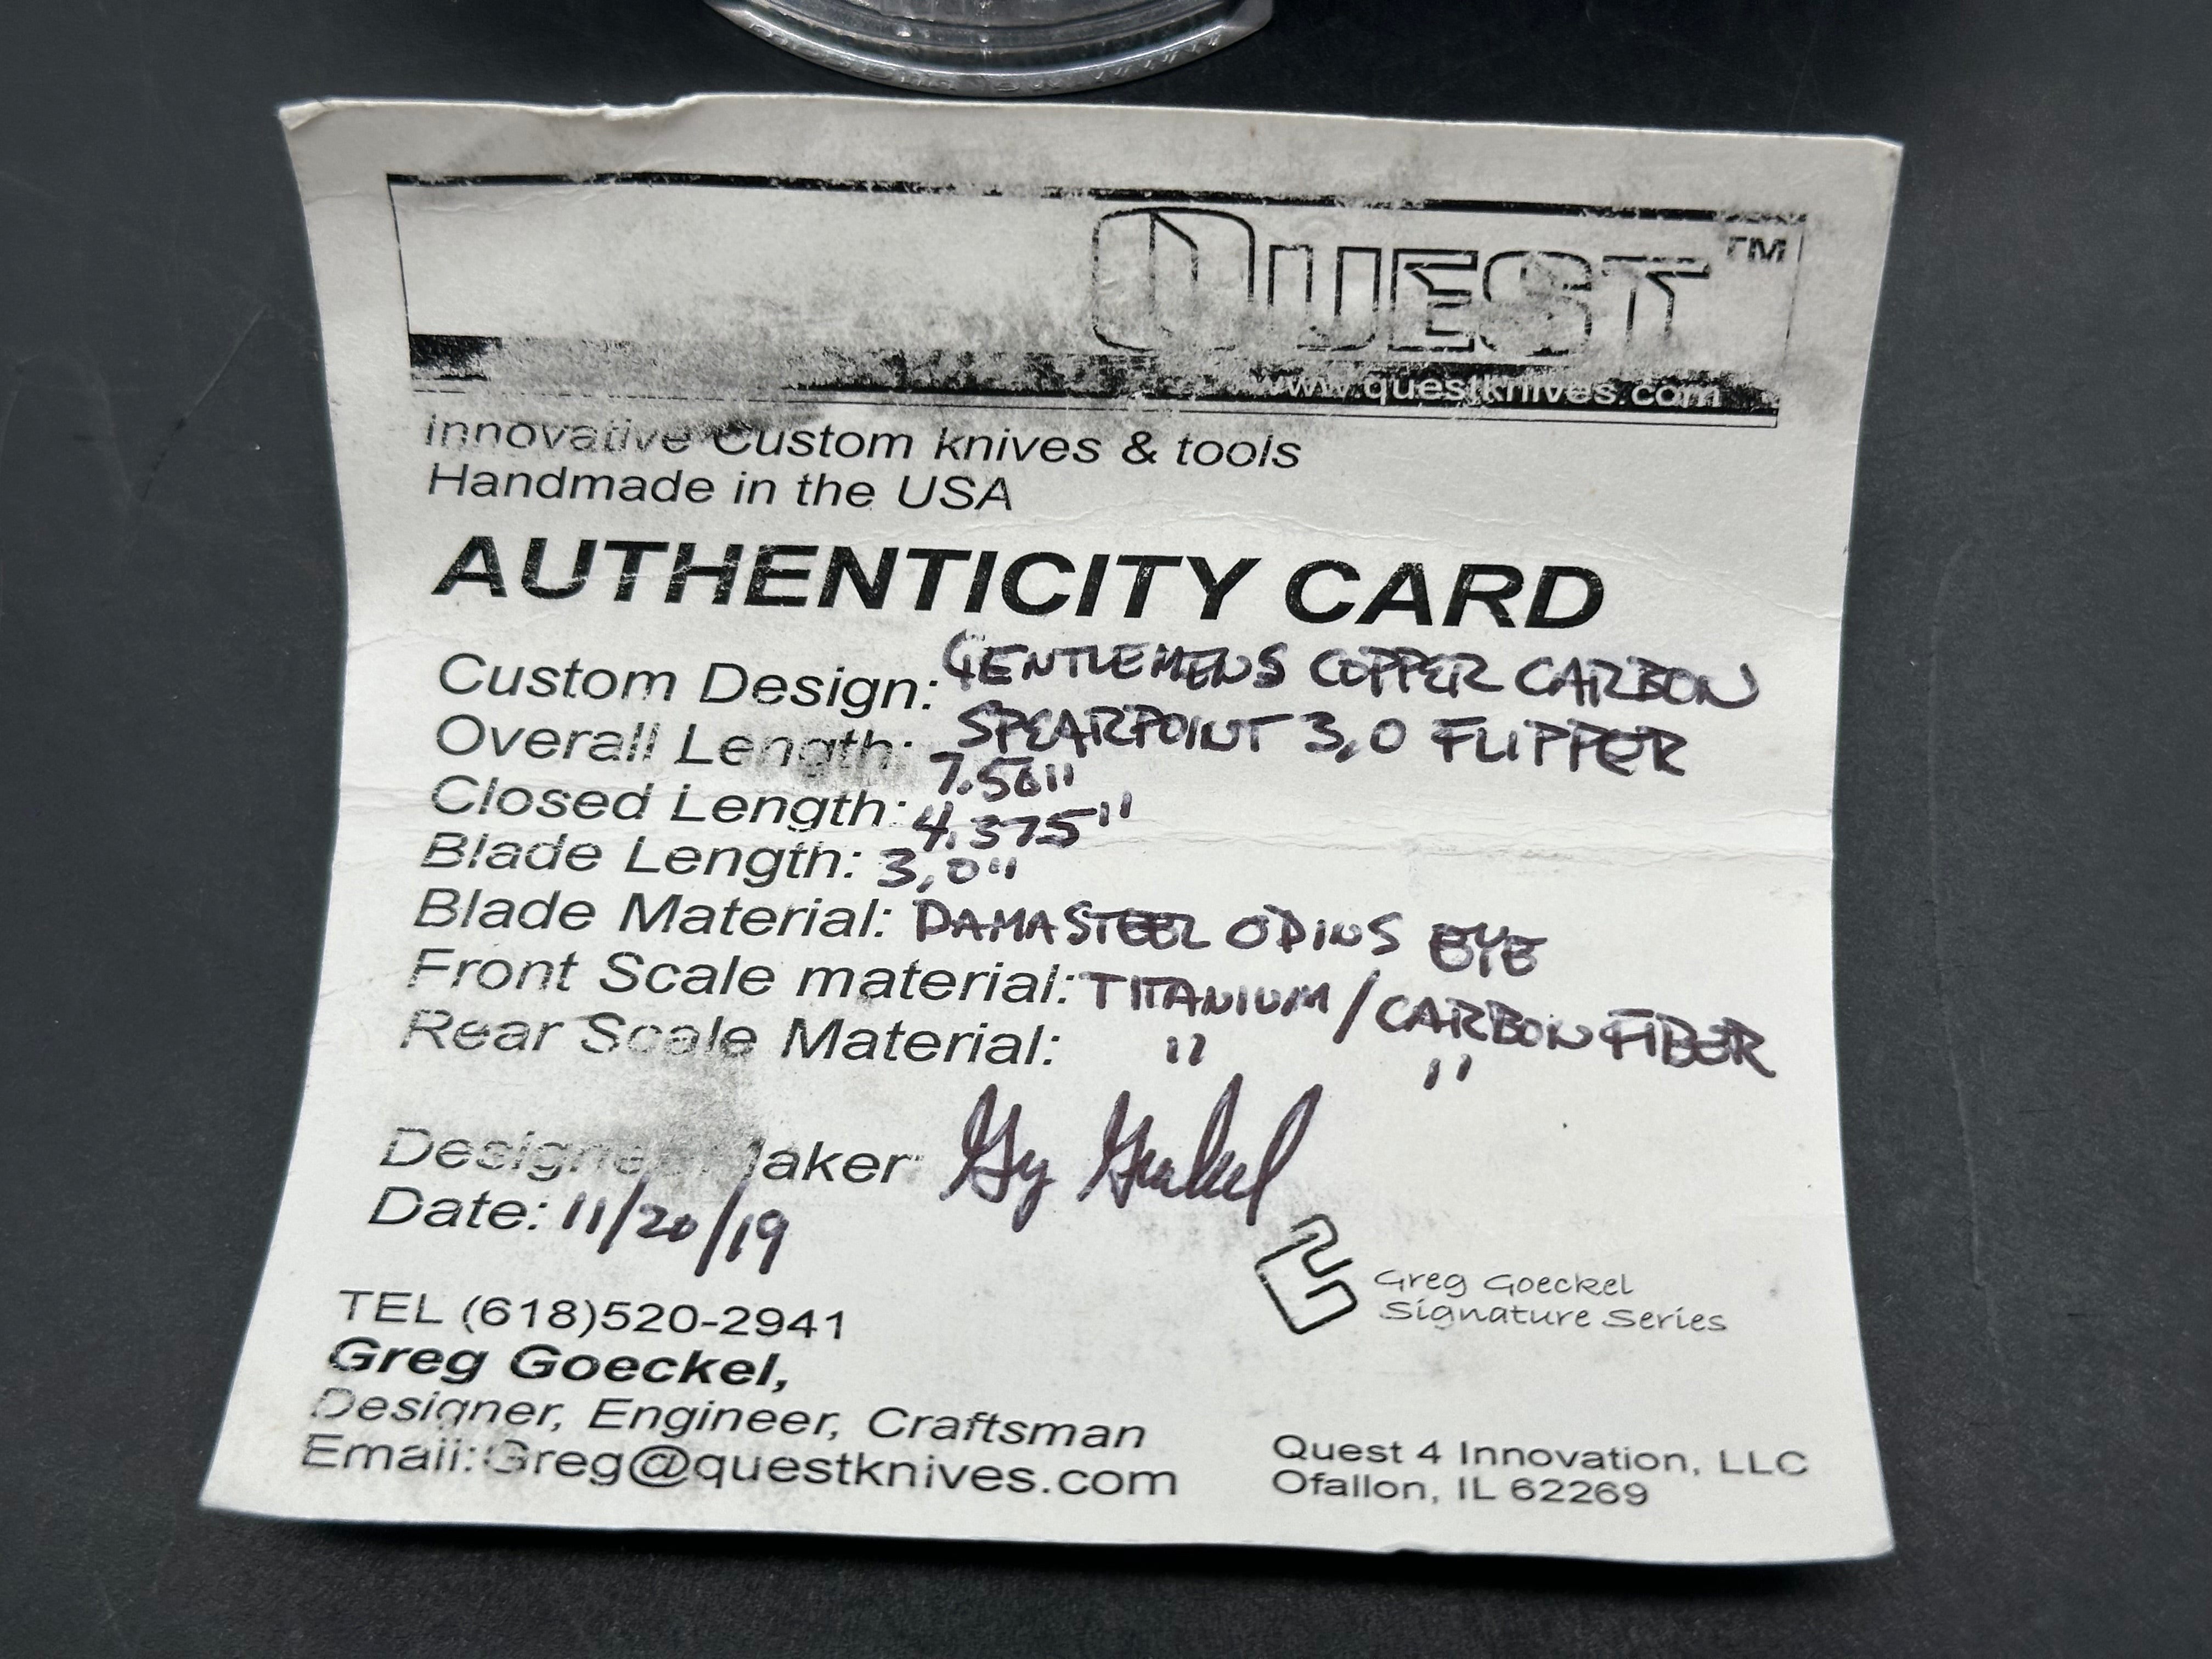 QUEST™
www.questknives.com
Innovative Custom knives & tools
Handmade in the USA
AUTHENTICITY CARD
Custom Design: GENTLEMENS COPPER CARBON
SPEARPOINT 3.0 FLIPPER
Overall Length: 7.50"
Closed Length: 4.375"
Blade Length: 3.0"
Blade Material: DAMASTEEL ODINS EYE
Front Scale material: TITANIUM / CARBON FIBER
Rear Scale Material: " "
Designer Maker:
Date: 11/20/19
Greg Goeckel
Signature Series
TEL (618)520-2941
Greg Goeckel,
Designer, Engineer, Craftsman
Email:Greg@questknives.com
Quest 4 Innovation, LLC
Ofallon, IL 62269